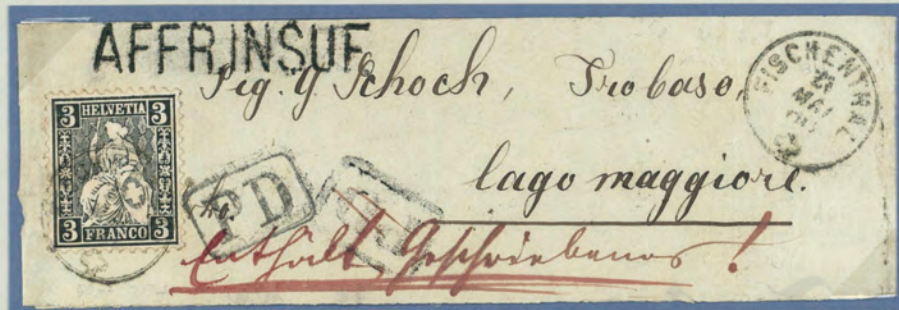 AFFR.INSUF
Sig. G. Schoch, Trobaso,
FISCHENTHAL
MAI
3 HELVETIA 3
3 FRANCO 3
lago maggiore.
fro.
PD
Enthält Geschriebenes!